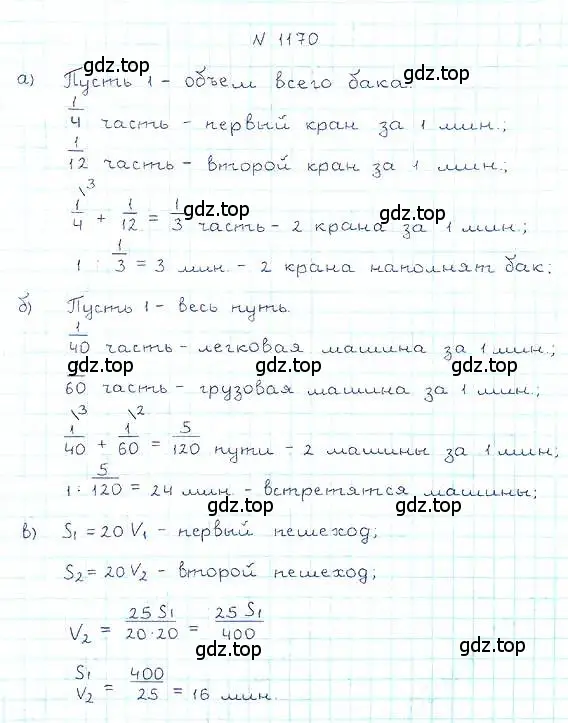 N 1170
gdz.top
а) Пусть 1 - объем всего бака.
1/4 часть - первый кран за 1 мин.;
1/12 часть - второй кран за 1 мин.;
gdz.top gdz.top
1/4 \3 + 1/12 = 1/3 часть - 2 крана за 1 мин.;
1 : 1/3 = 3 мин - 2 крана наполнят бак;
б) Пусть 1 - весь путь.
1/40 часть - легковая машина за 1 мин.;
gdz.top gdz.top
60 часть - грузовая машина за 1 мин.;
1/40 \3 + 1/60 \2 = 5/120 пути - 2 машины за 1 мин;
1 : 5/120 = 24 мин - встретятся машины;
gdz.top gdz.top
в) S1 = 20 V1 - первый пешеход;
S2 = 20 V2 - второй пешеход;
V2 = 25 S1/20·20 = 25 S1/400
gdz.top gdz.top
S1/V2 = 400/25 = 16 мин.